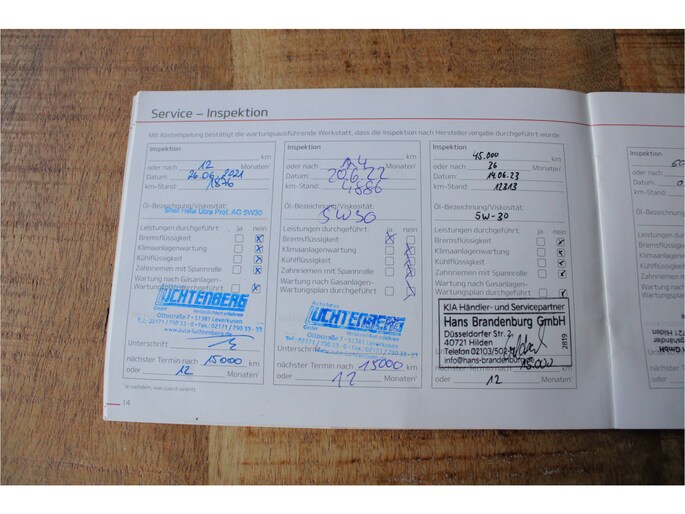 Service – Inspektion
Mit Kostempelung bestätigt die wartungsausführende Werkstatt, dass die Inspektion nach Herstellervorgabe durchgeführt wurde.
Inspektion
km
oder nach 12 Monaten¹
Datum 26.06.2021
km-Stand: 1876
Öl-Bezeichnung/Viskosität:
Shell Helix Ultra Prof. AG 5W30
Leistungen durchgeführt: ja nein
Bremsflüssigkeit
Klimaanlagenwartung
Kühlflüssigkeit
Zahnriemen mit Spannrolle
Wartung nach Gasanlagen-
Wartungsplan durchgeführt
LICHTENBERG
GmbH
Ottostraße 7 • 51381 Leverkusen
Unterschrift
nächster Termin nach 15000 km
oder 12 Monaten¹
Inspektion
km
oder nach 24 Monaten¹
Datum 20.6.22
km-Stand: 4886
Öl-Bezeichnung/Viskosität:
5W30
Leistungen durchgeführt: ja nein
Bremsflüssigkeit
Klimaanlagenwartung
Kühlflüssigkeit
Zahnriemen mit Spannrolle
Wartung nach Gasanlagen-
Wartungsplan durchgeführt
Autohaus
LICHTENBERG
GmbH
Ottostraße 7 • 51381 Leverkusen
nächster Termin nach 15000 km
oder 12 Monaten¹
Inspektion
45.000 km
oder nach 36 Monaten¹
Datum: 14.06.23
km-Stand: 12313
Öl-Bezeichnung/Viskosität:
5W-30
Leistungen durchgeführt: ja nein
Bremsflüssigkeit
Klimaanlagenwartung
Kühlflüssigkeit
Zahnriemen mit Spannrolle
Wartung nach Gasanlagen-
Wartungsplan durchgeführt
KIA Händler- und Servicepartner
Hans Brandenburg GmbH
Düsseldorfer Str. 2
40721 Hilden
Telefon 02103/502
info@hans-brandenburg.de
2819
nächster Termin nach 15.000 km
oder 12 Monaten¹
14
Inspektion
oder nach
Datum
km-Stand
Öl-Bezeichnung
Leistungen
Bremsflüssigkeit